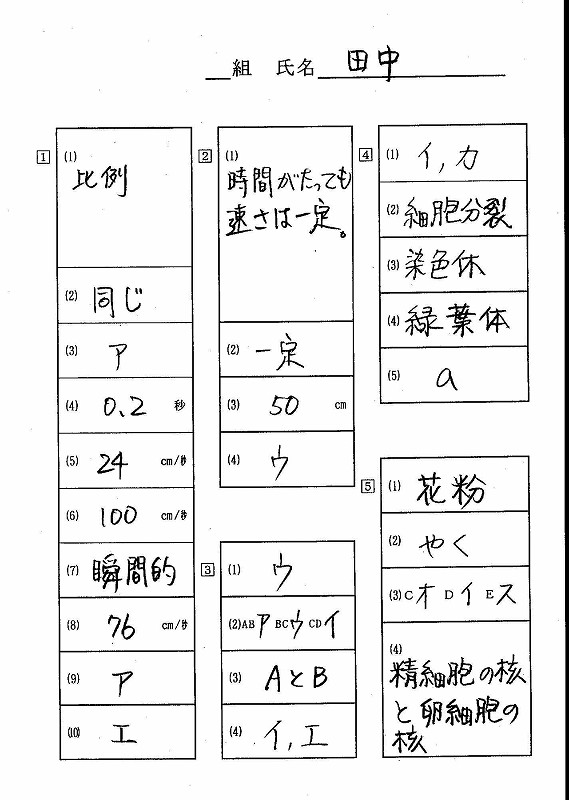 組 氏名 田中
1
(1)
比例
(2) 同じ
(3) ア
(4) 0.2 秒
(5) 24 cm/秒
(6) 100 cm/秒
(7) 瞬間的
(8) 76 cm/秒
(9) ア
(10) エ
2
(1)
時間がたっても
速さは一定。
(2) 一定
(3) 50 cm
(4) ウ
3
(1) ウ
(2) AB ア BC ウ CD イ
(3) AとB
(4) イ,エ
4
(1) イ,カ
(2) 細胞分裂
(3) 染色体
(4) 緑葉体
(5) a
5
(1) 花粉
(2) やく
(3) C オ D イ E ス
(4)
精細胞の核
と卵細胞の
核